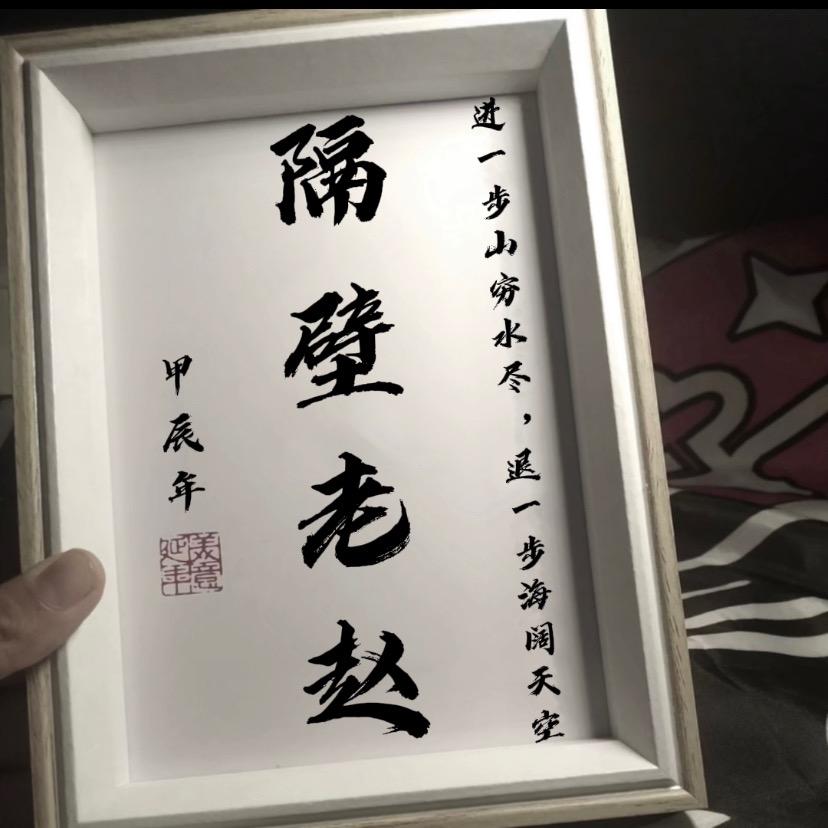 进一步山穷水尽，退一步海阔天空
隔壁老赵
甲辰年
美意延年